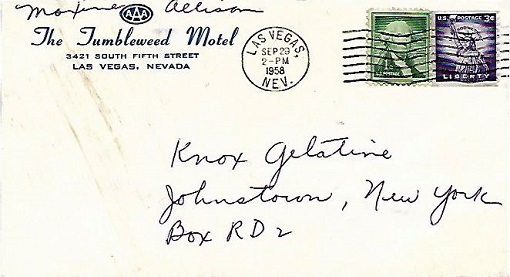 Maxine Allison
AAA
The Tumbleweed Motel
3421 SOUTH FIFTH STREET
LAS VEGAS, NEVADA
LAS VEGAS,
SEP 29
2-PM
1958
NEV.
U.S. POSTAGE
U.S. POSTAGE 3¢
LIBERTY
Knox Gelatine
Johnstown, New York
Box RD 2